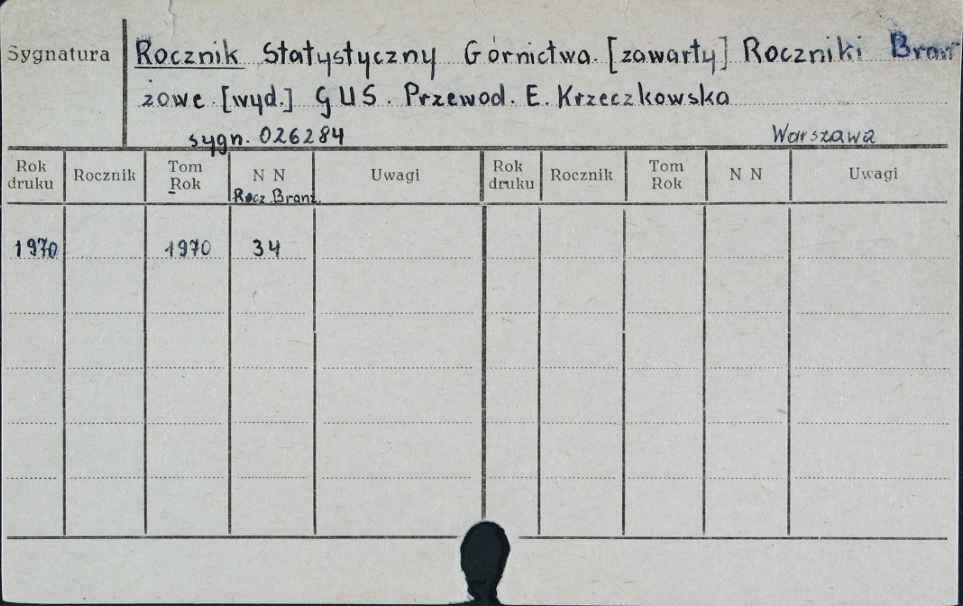 Sygnatura Rocznik Statystyczny Górnictwa. [zawarty] Roczniki Branż
żowe. [wyd.] GUS. Przewod. E. Krzeczkowska
sygn. 026284 Warszawa
Rok druku Rocznik Tom Rok N N Uwagi Rok druku Rocznik Tom Rok N N Uwagi
Rocz. Branż.
1970 1970 34